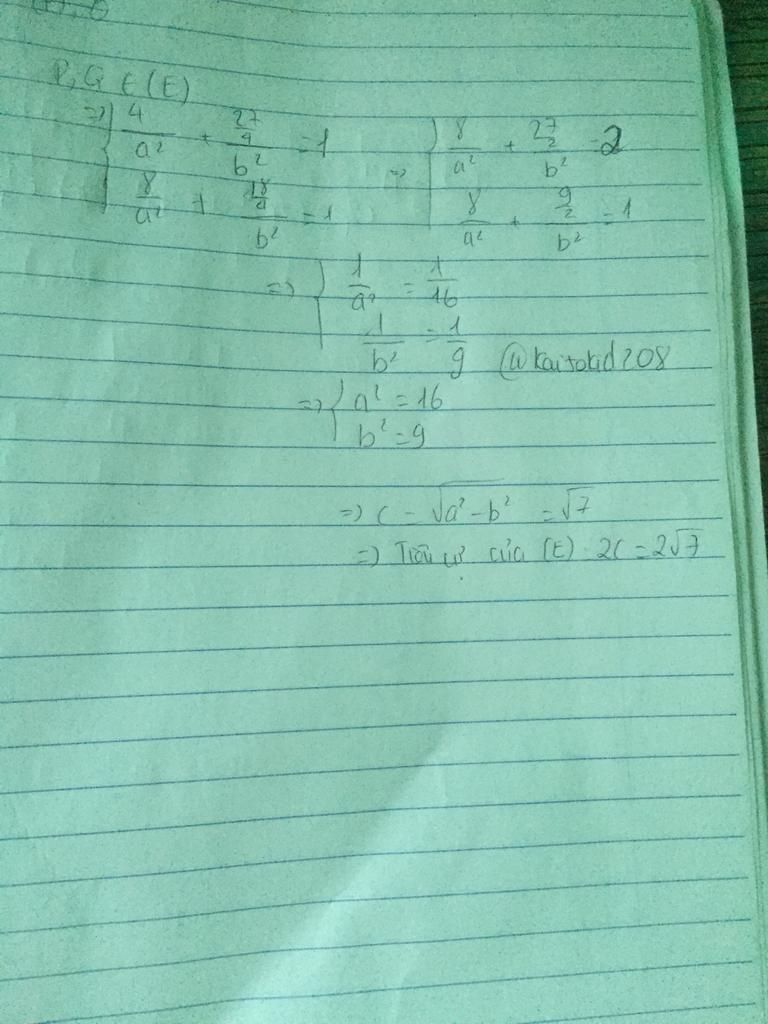 P, Q ∈ (E)
=> { 4/a² + (27/4)/b² = 1 => { 8/a² + (27/2)/b² = 2
8/a² + (18/4)/b² = 1 8/a² + (9/2)/b² = 1
=> { 1/a² = 1/16
1/b² = 1/9 @kaitokid208
=> { a² = 16
b² = 9
=> c = √(a² - b²) = √7
=> Tiêu cự của (E) 2c = 2√7